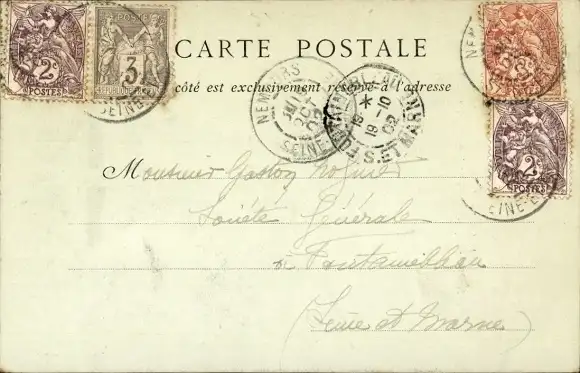 CARTE POSTALE
Ce côté est exclusivement réservé à l'adresse
NEMOURS
SEINE
FONTAINEBLEAU
19 -10
02
S. ET MARNE
2
POSTES
3
2
POSTES
Monsieur Gaston
Société Générale
à Fontainebleau
(Seine et Marne)